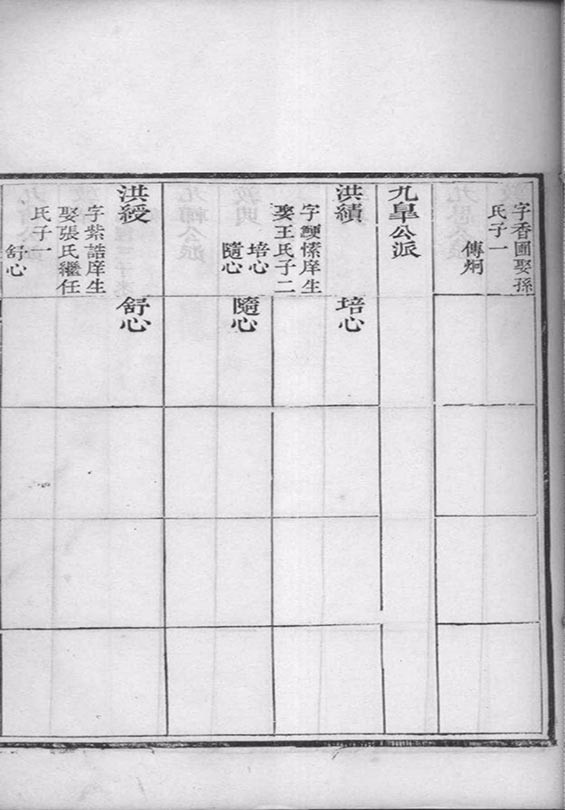 字香圃娶孫
氏子一
傳炯
九皐公派
洪績
字鯁愫庠生
娶王氏子二
培心
隨心
培心
隨心
洪綬
字紫誥庠生
娶張氏繼任
氏子一
舒心
舒心